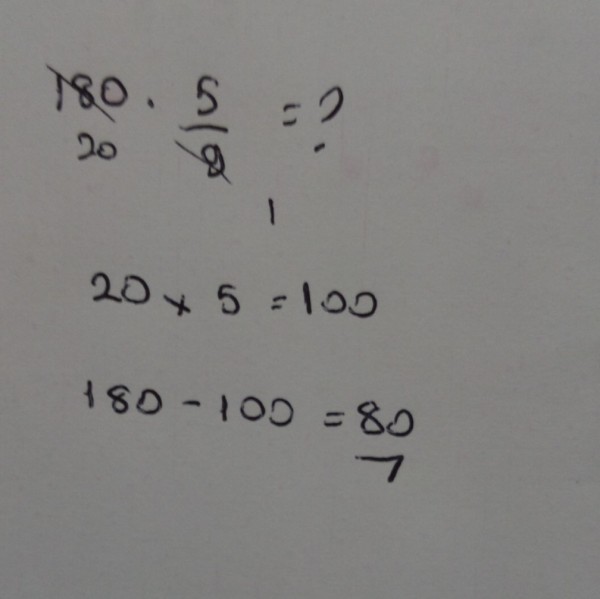 180 · 5/9 = ?
20 1
20 x 5 = 100
180 - 100 = 80